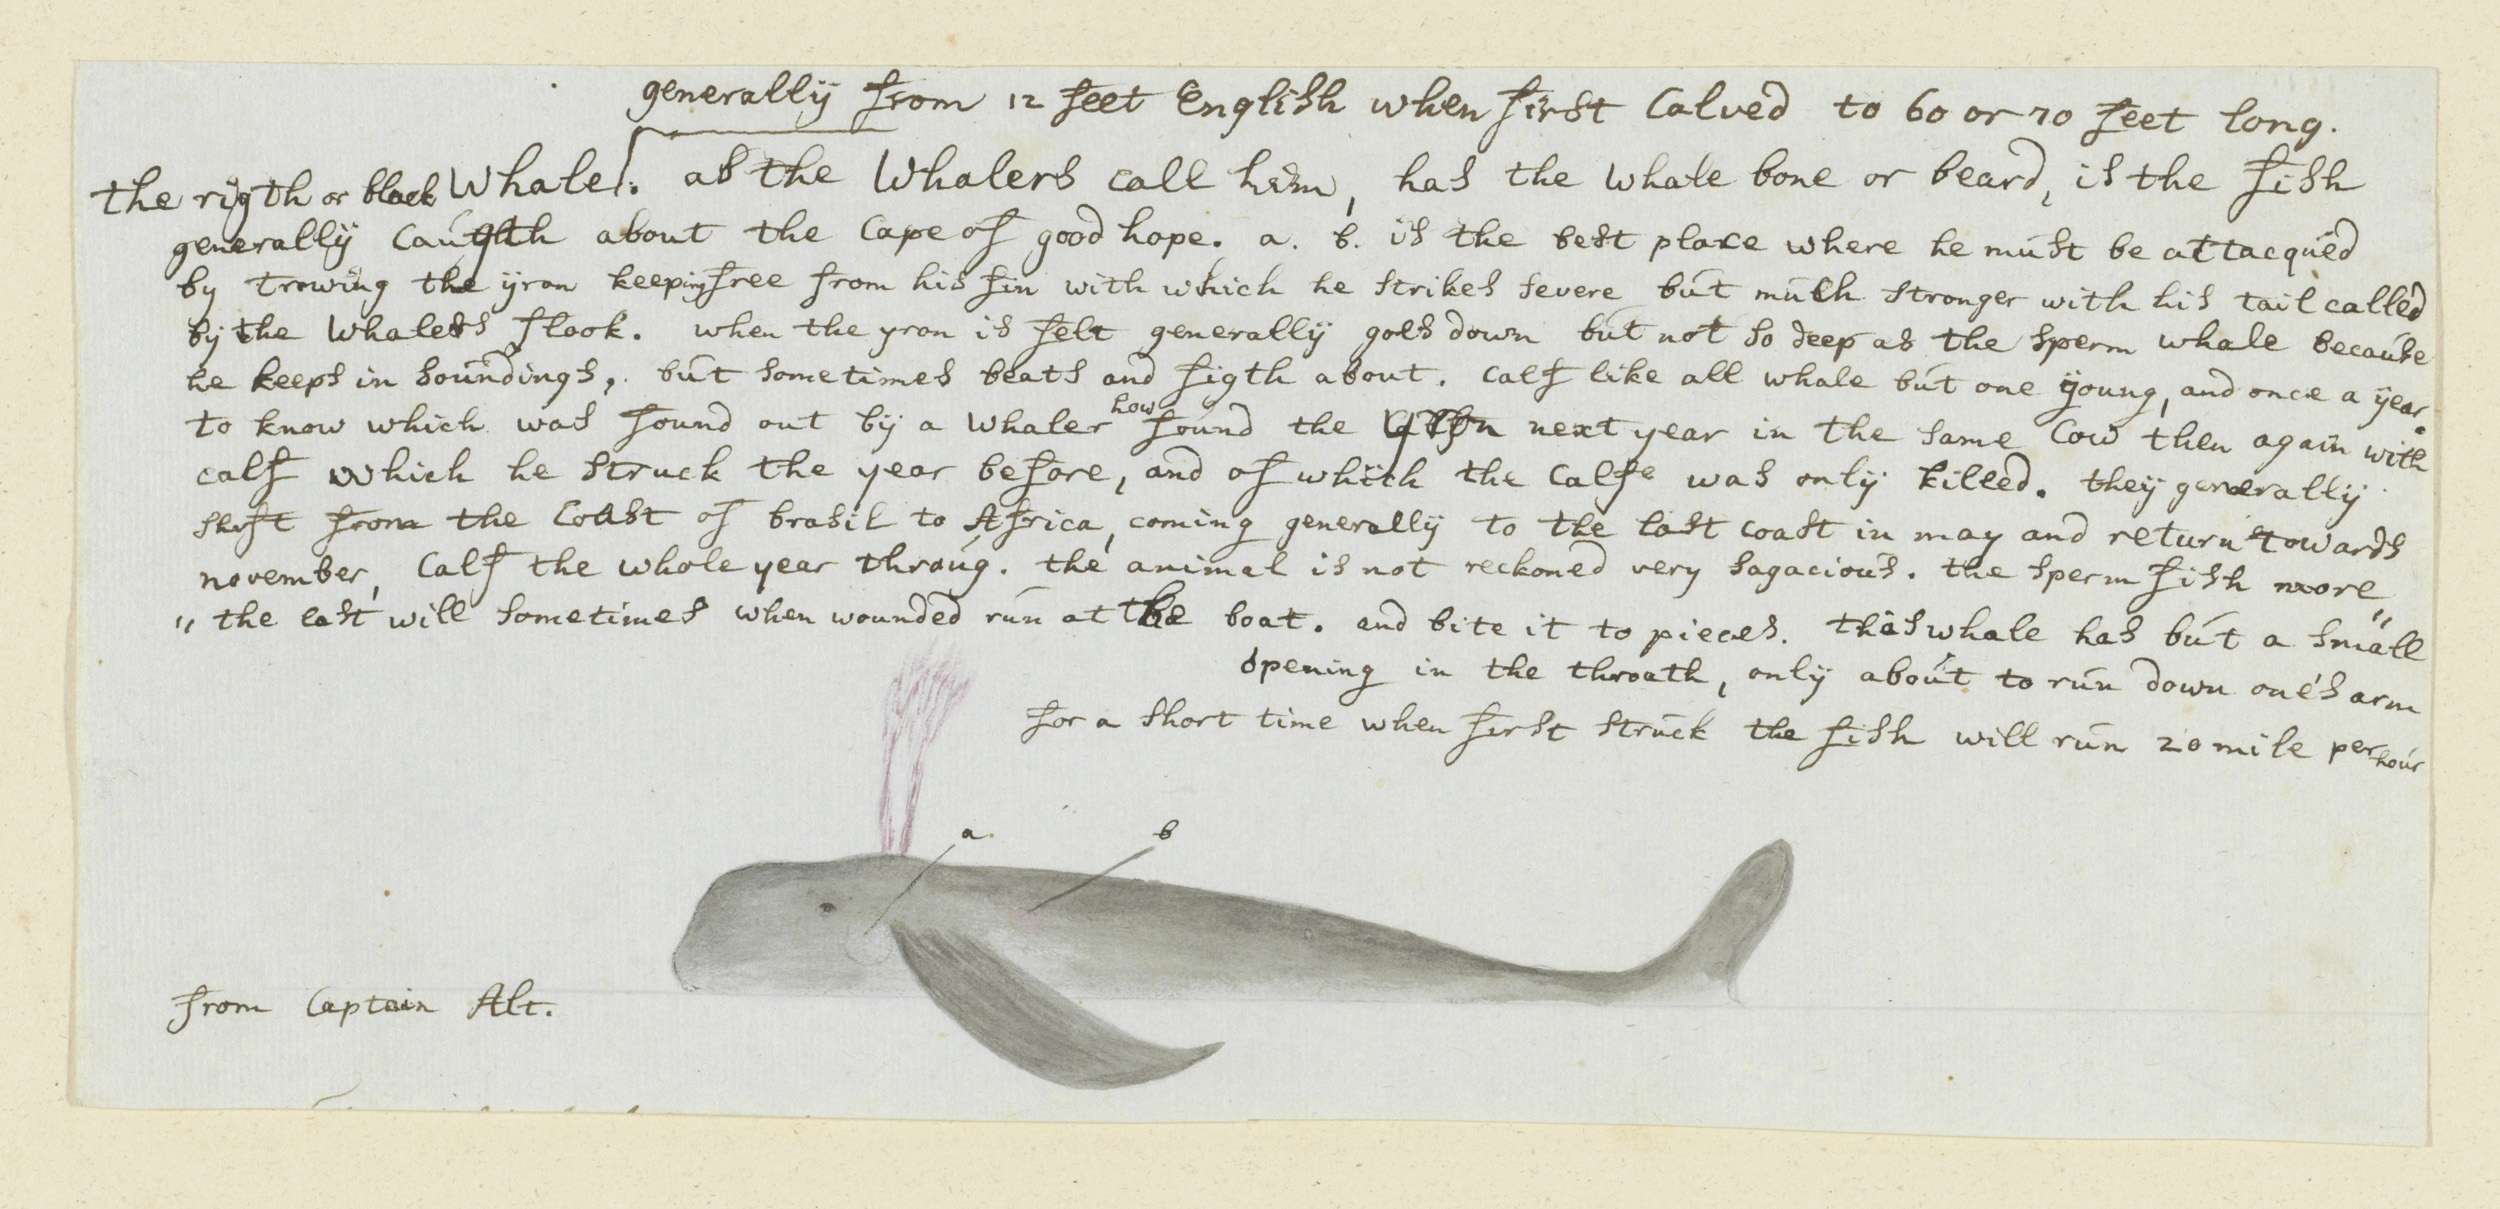 generallÿ from 12 feet English when first Calved to 60 or 70 feet long.
the rigth or black Whale. as the Whalers call him, has the whale bone or beard, is the fish
generallÿ Caugth about the Cape of good hope. a. b. is the best place where he must be attacqued
by trowing the ÿron keeping free from his fin with which he strikes severe but much stronger with his tail called
bÿ the Whalers flook. when the yron is felt generallÿ goes down but not so deep as the sperm whale because
he keeps in soundings, but sometimes beats and figth about. calf like all whale but one ÿoung, and once a ÿear
to know which was found out bÿ a Whaler how found the next year in the same Cow then again with
calf which he struck the year before, and of which the Calfe was only killed. theÿ generallÿ
shift from the Coast of brasil to Africa, coming generallÿ to the last coast in may and return towards
november, Calf the whole year throug. the animal is not reckoned very sagacious. the sperm fish more
" the last will sometimes when wounded run at the boat. and bite it to pieces. " this whale has but a small
opening in the throath, onlÿ about to run down one's arm
for a short time when first struck the fish will run 20 mile per hour
a
b
from Captain Alt.